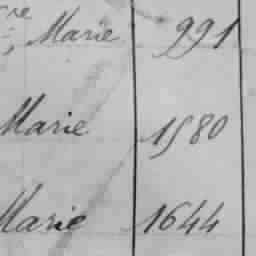 re, Marie 991
Marie 1580
Marie 1644